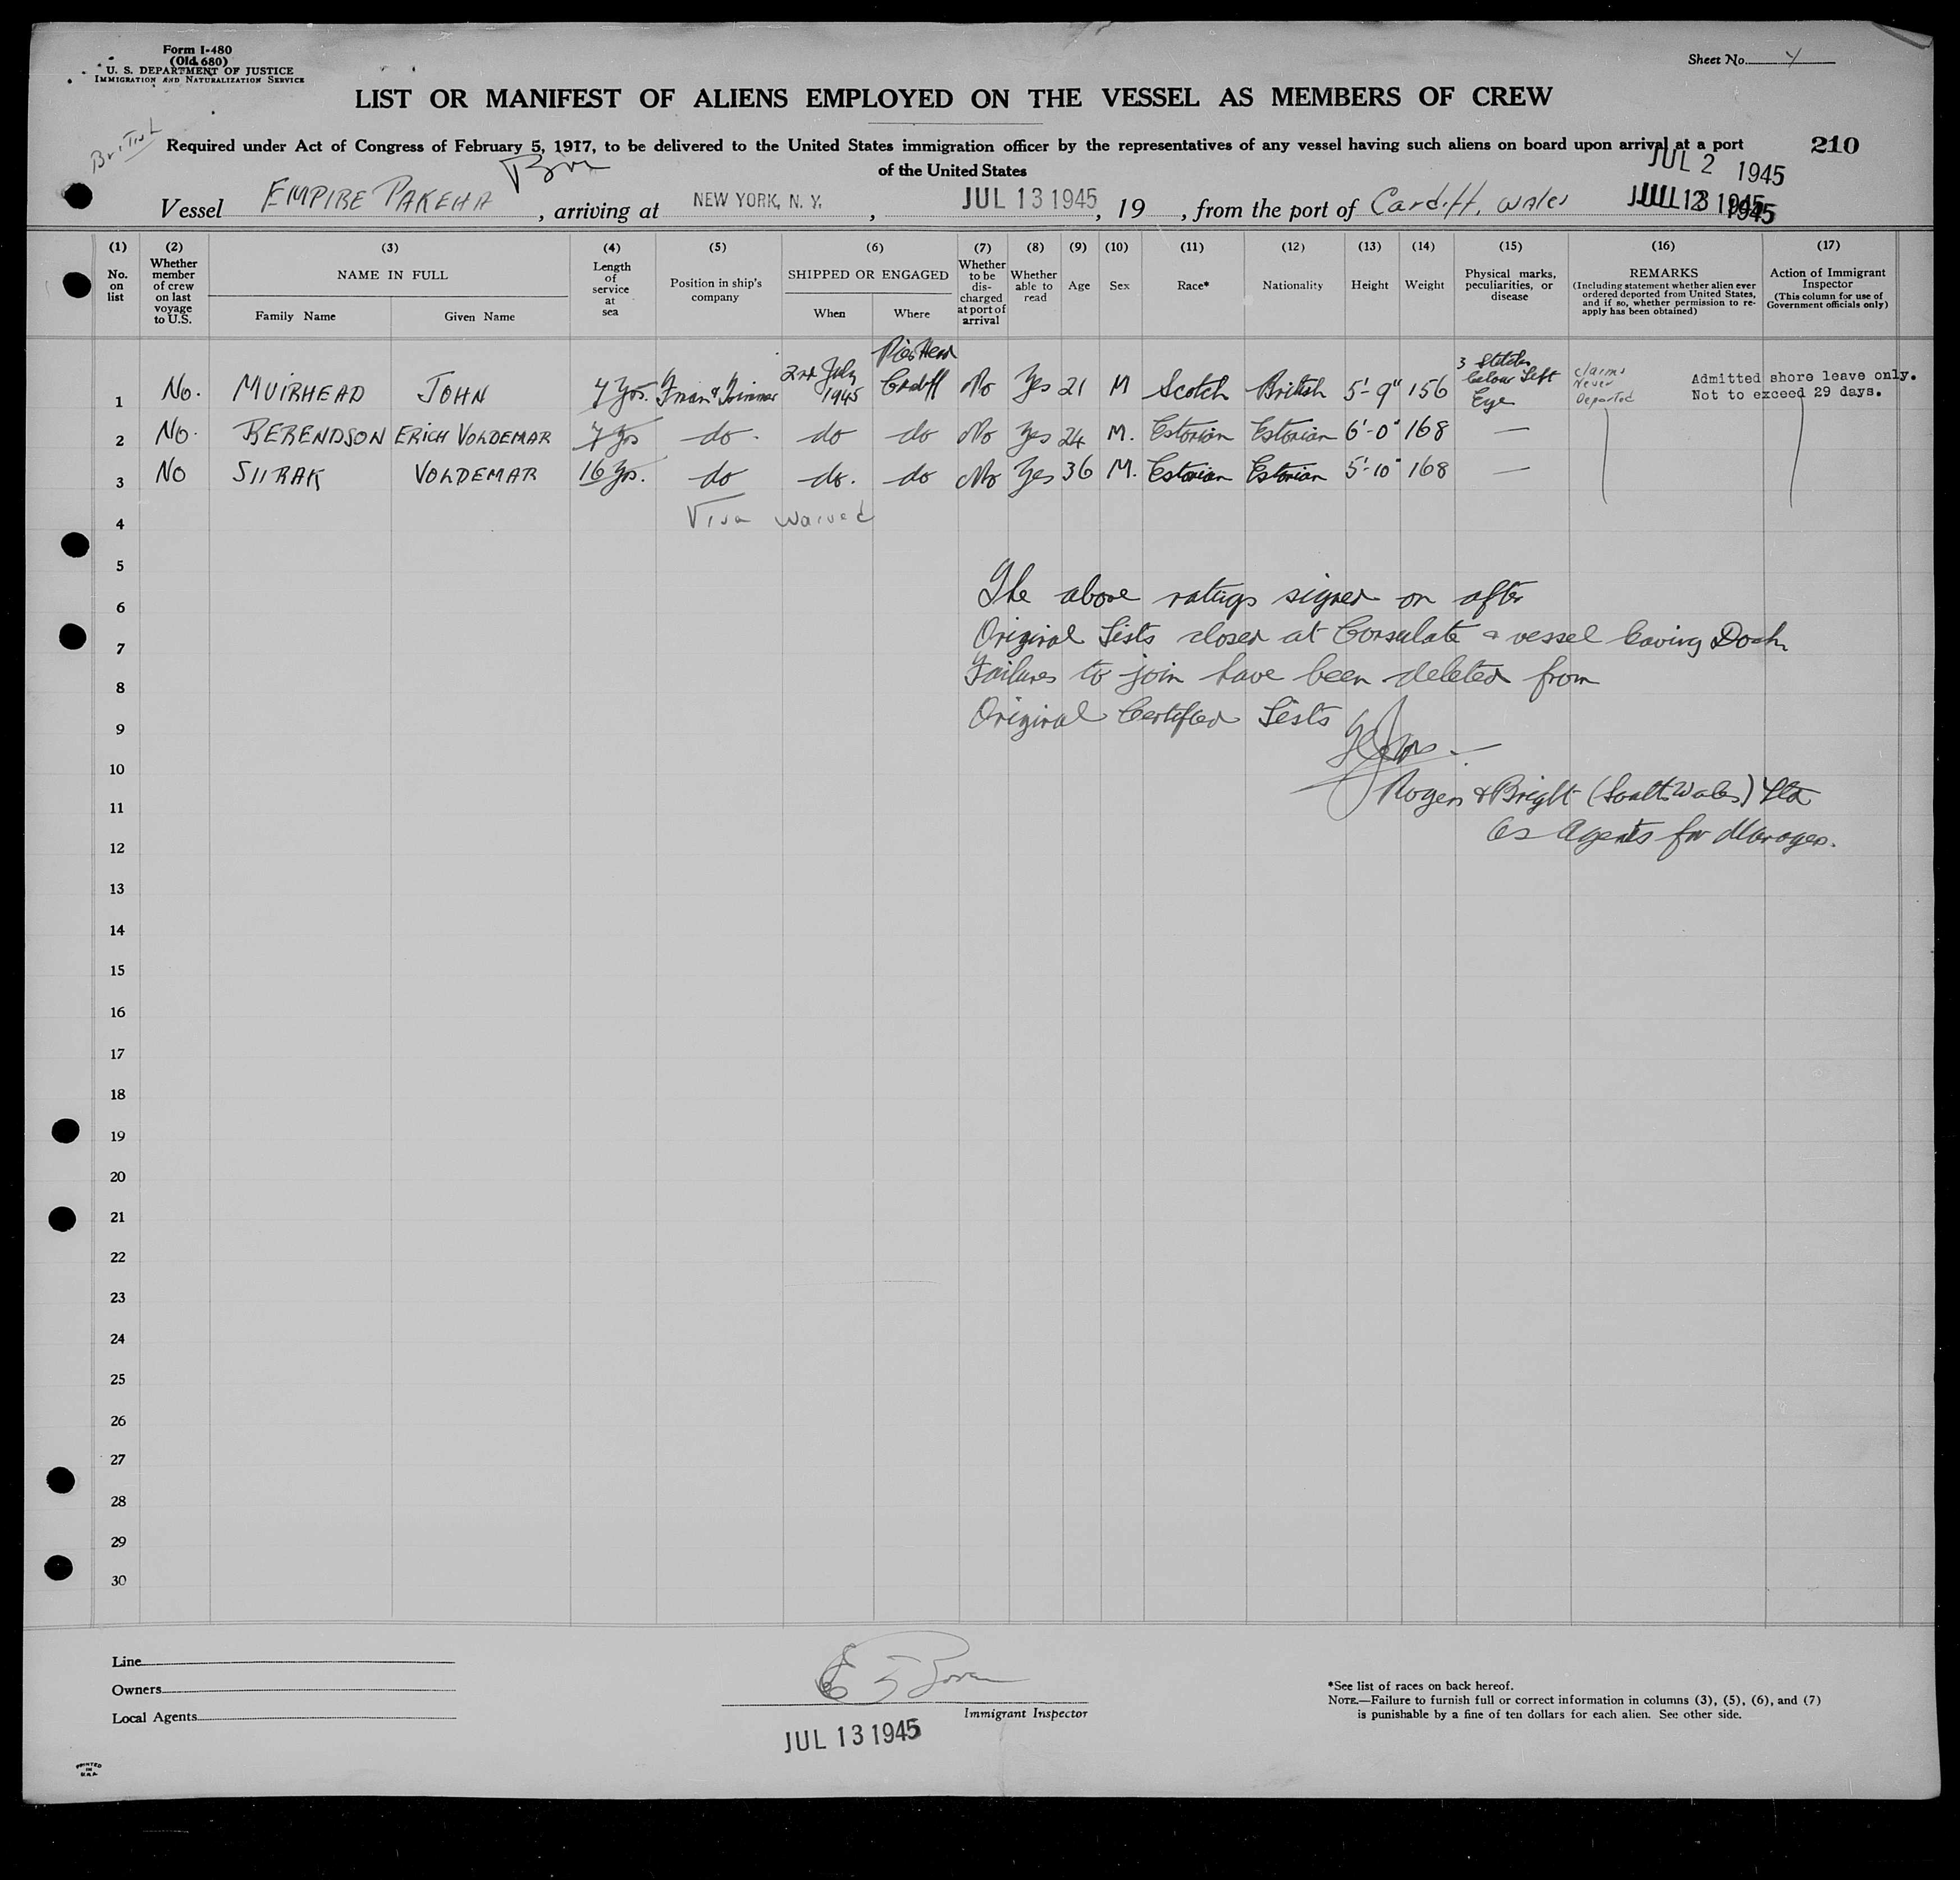 Form I-480
(Old 680)
U. S. DEPARTMENT OF JUSTICE
IMMIGRATION AND NATURALIZATION SERVICE
Sheet No.
LIST OR MANIFEST OF ALIENS EMPLOYED ON THE VESSEL AS MEMBERS OF CREW
British
Required under Act of Congress of February 5, 1917, to be delivered to the United States immigration officer by the representatives of any vessel having such aliens on board upon arrival at a port
of the United States
210
JUL 2 1945
Vessel EMPIRE PAKEHA, arriving at NEW YORK, N. Y., JUL 13 1945, 19 , from the port of Cardiff, Wales
(1) (2) (3) (4) (5) (6) (7) (8) (9) (10) (11) (12) (13) (14) (15) (16) (17)
No. on list
Whether member of crew on last voyage to U.S.
NAME IN FULL
Family Name Given Name
Length of service at sea
Position in ship's company
SHIPPED OR ENGAGED
When Where
Whether to be discharged at port of arrival
Whether able to read
Age
Sex
Race*
Nationality
Height
Weight
Physical marks, peculiarities, or disease
REMARKS
(Including statement whether alien ever ordered deported from United States, and if so, whether permission to reapply has been obtained)
Action of Immigrant Inspector
(This column for use of Government officials only)
1 No. MUIRHEAD JOHN 4 Yrs. Fman & Trimmer 2nd July 1945 Pier Head Cardiff No Yes 21 M Scotch British 5'-9" 156 3 Stitches below Left Eye claims Never Deported Admitted shore leave only. Not to exceed 29 days.
2 No. BERENDSON ERICH VOLDEMAR 7 Yrs do. do do No Yes 24 M. Estonian Estonian 6'-0" 168 —
3 No SIIRAK VOLDEMAR 16 Yrs. do do. do No Yes 36 M. Estonian Estonian 5'-10" 168 —
4 Visa waived
5
6 The above ratings signed on after
7 Original Lists closed at Consulate & vessel leaving Dock
8 Failures to join have been deleted from
9 Original Certified Lists
10
11 Rogers & Bright (South Wales) Ltd
12 As Agents for Managers.
13
14
15
16
17
18
19
20
21
22
23
24
25
26
27
28
29
30
Line
Owners
Local Agents
Immigrant Inspector
JUL 13 1945
*See list of races on back hereof.
NOTE.—Failure to furnish full or correct information in columns (3), (5), (6), and (7)
is punishable by a fine of ten dollars for each alien. See other side.
PRINTED
IN
U.S.A.